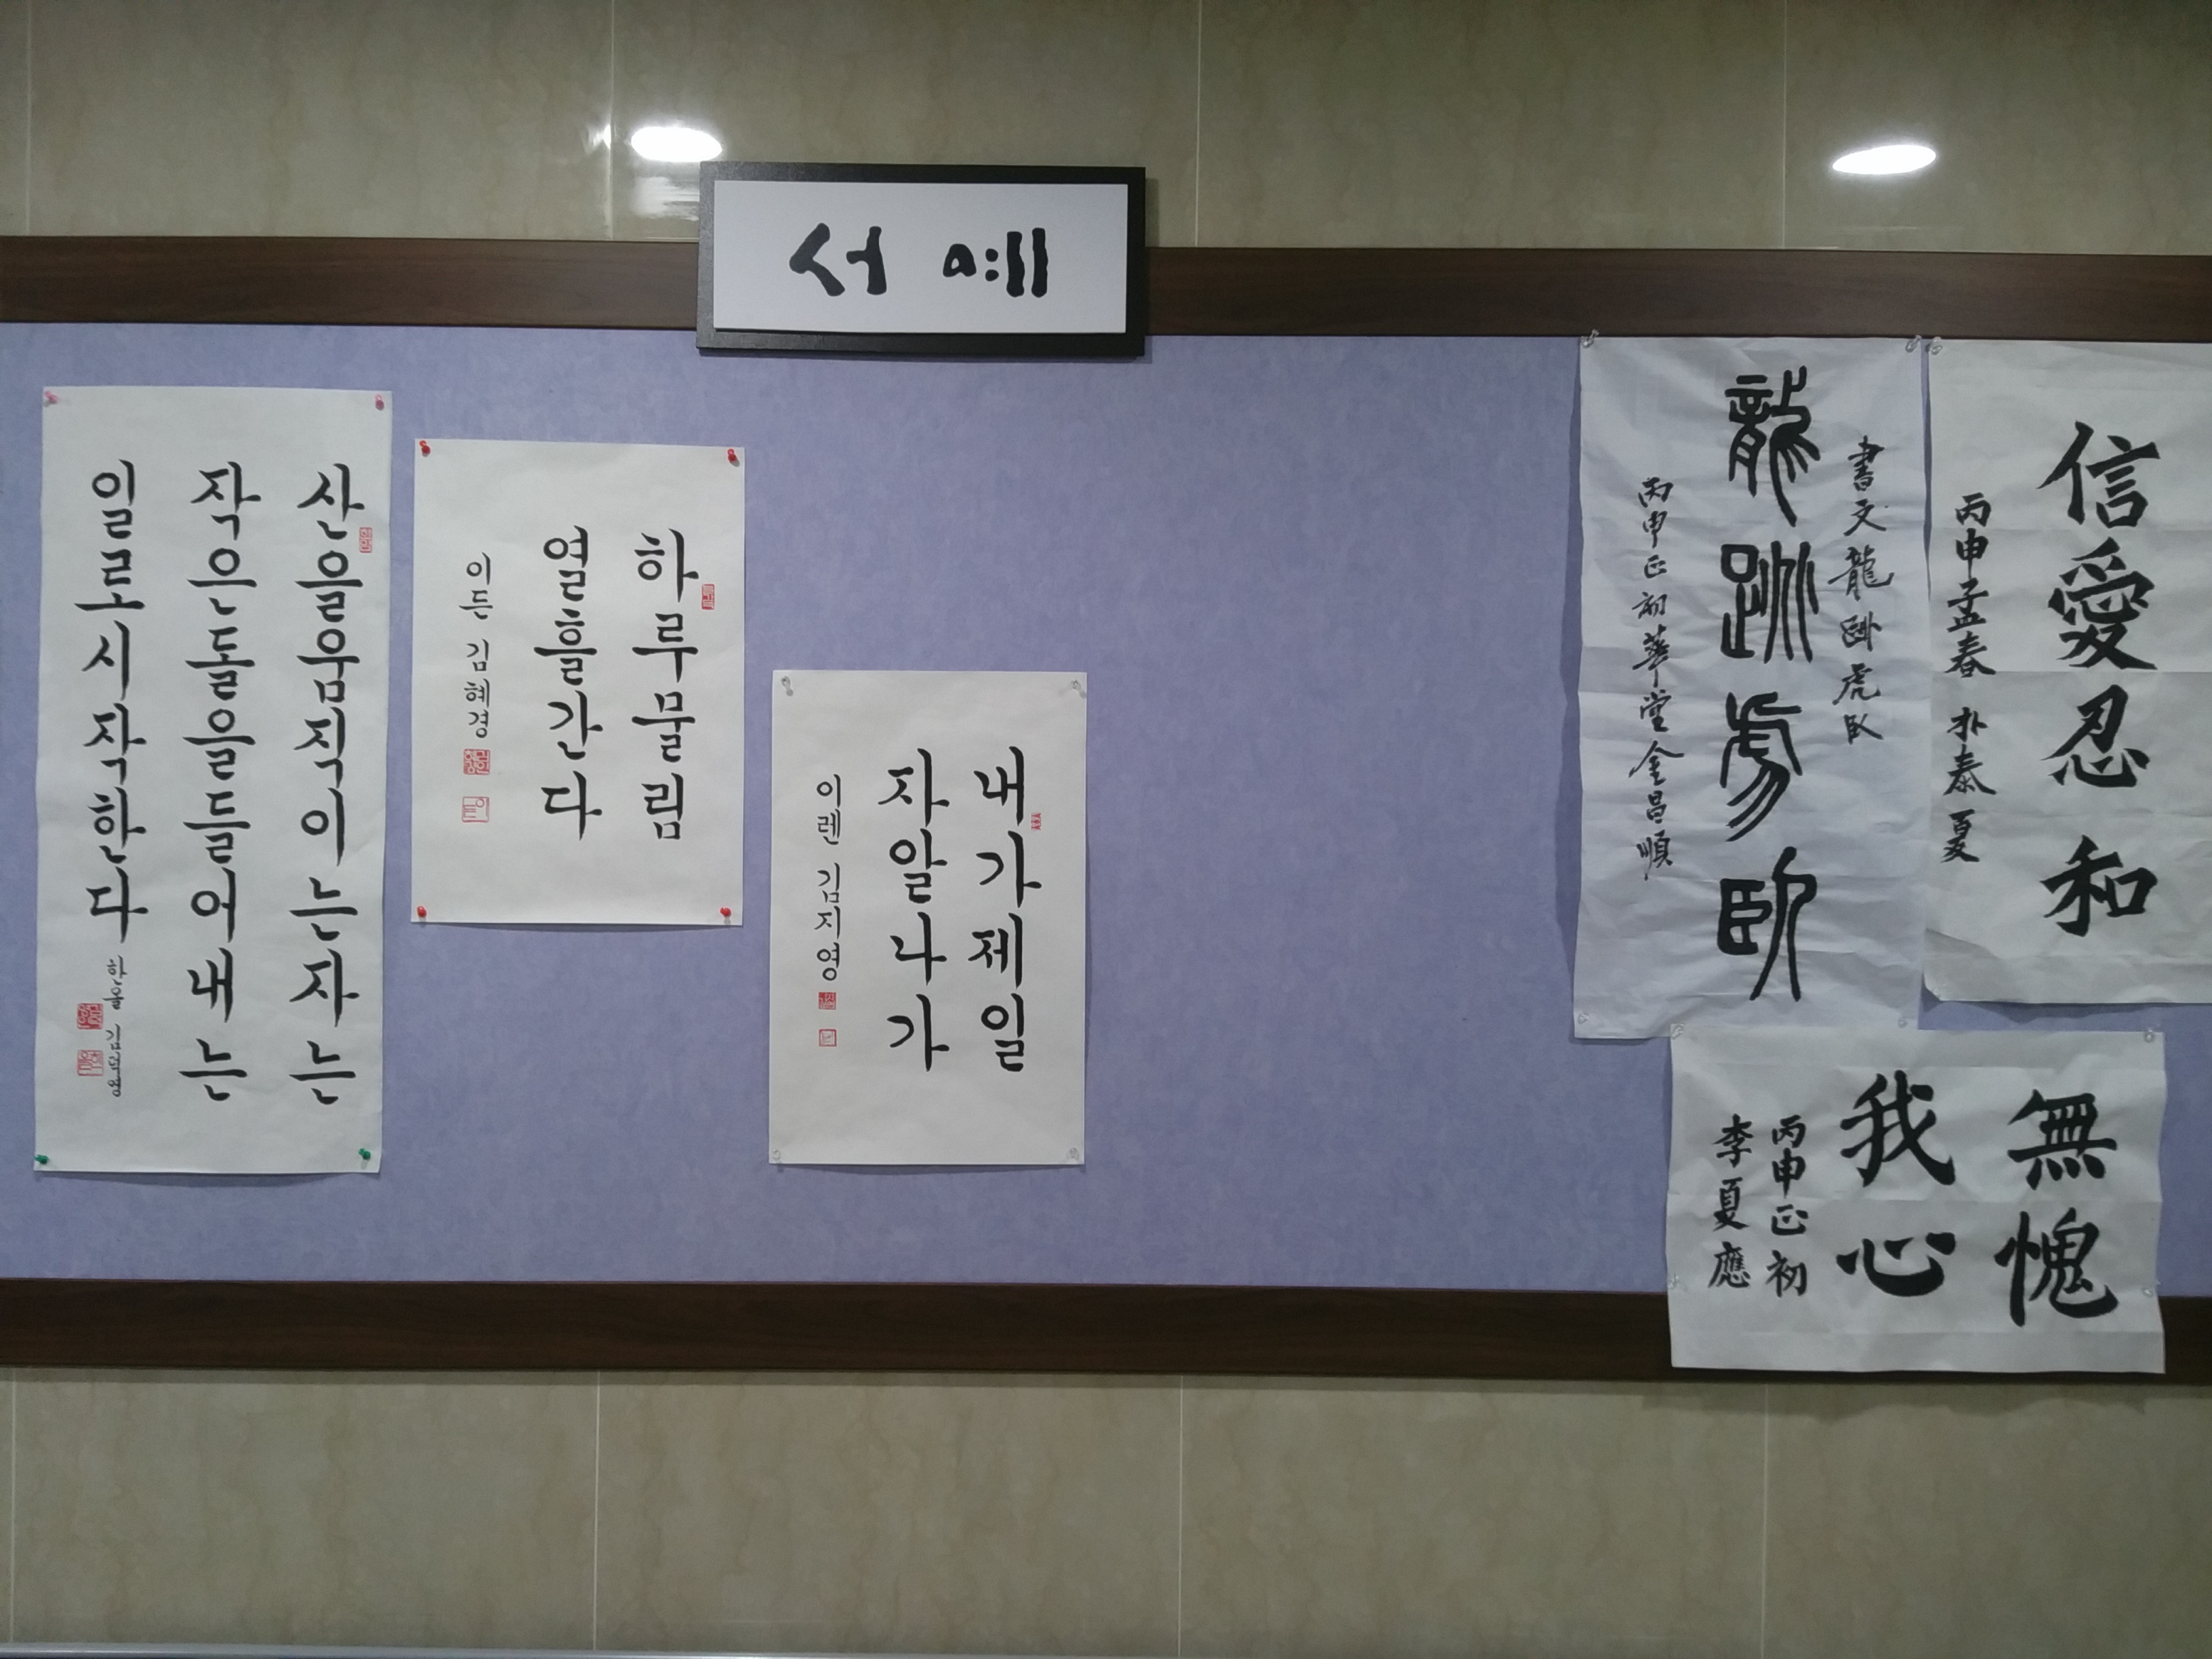 서 예
산을움직이는자는
작은돌을들어내는
일로시작한다
한울 김덕용
하루물림
열흘간다
이든 김혜경
내가제일
자알나가
이렌 김지영
龍跳虎臥
丙申正初華堂金昌順
信愛忍和
丙申孟春 朴泰夏
無愧
我心
丙申正初
李夏應